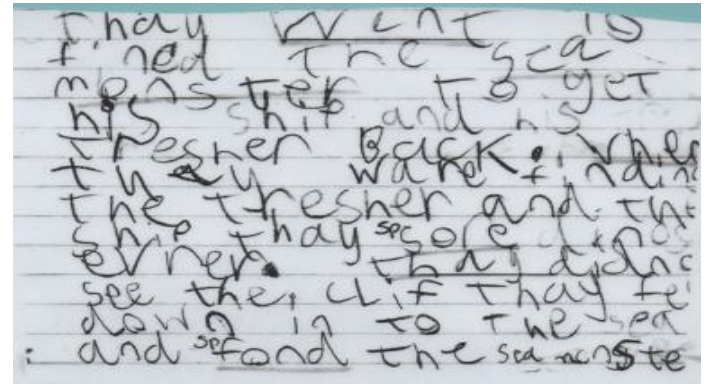 thay went to
fined the sea
monster to get
his ship and his
tresher Back. when
thay ware finding
the tresher and the
ship thay sp sore dinos
erner. thay didn
see the, clif thay fe
down in to the sea
and sp fond the sea monste